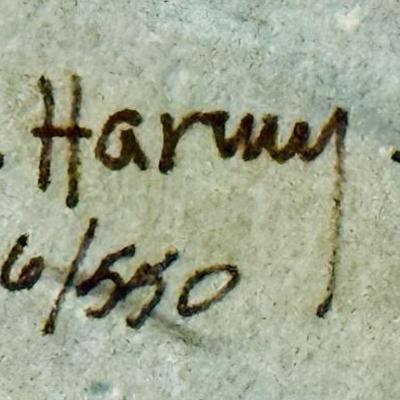 . Harvey .
6/550